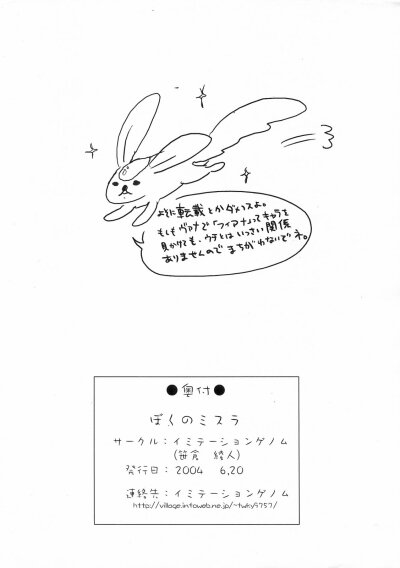 よそに転載とかダメっスよ。
もしもヴァナで「フィアナ」ってキャラを
見かけても、ウチとはいっさい関係
ありませんので まちがわないでネ。
●奥付●
ぼくのミスラ
サークル：イミテーションゲノム
(笹倉 綾人)
発行日：2004 6,20
連絡先：イミテーションゲノム
http://village.infoweb.ne.jp/~fwky5757/